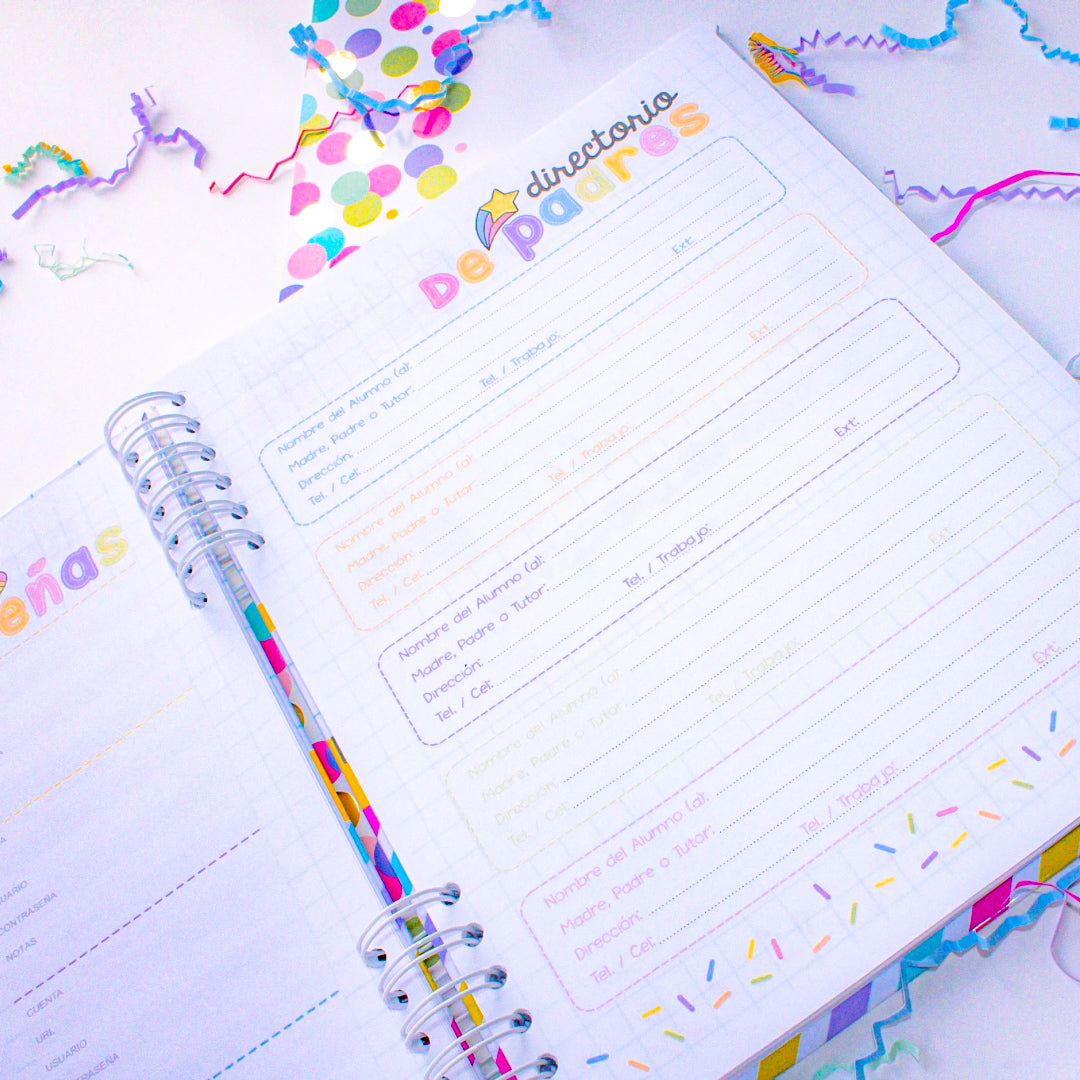 eñas
UARIO
CONTRASEÑA
NOTAS
CUENTA
URL
USUARIO
directorio
De padres
Nombre del Alumno (a):
Madre, Padre o Tutor:
Dirección:
Tel. / Cel: Tel. / Trabajo: Ext:
Nombre del Alumno (a):
Madre, Padre o Tutor:
Dirección:
Tel. / Cel: Tel. / Trabajo: Ext:
Nombre del Alumno (a):
Madre, Padre o Tutor:
Dirección:
Tel. / Cel: Tel. / Trabajo: Ext:
Nombre del Alumno (a):
Madre, Padre o Tutor:
Dirección:
Tel. / Cel: Tel. / Trabajo: Ext:
Nombre del Alumno (a):
Madre, Padre o Tutor:
Dirección:
Tel. / Cel: Tel. / Trabajo: Ext: